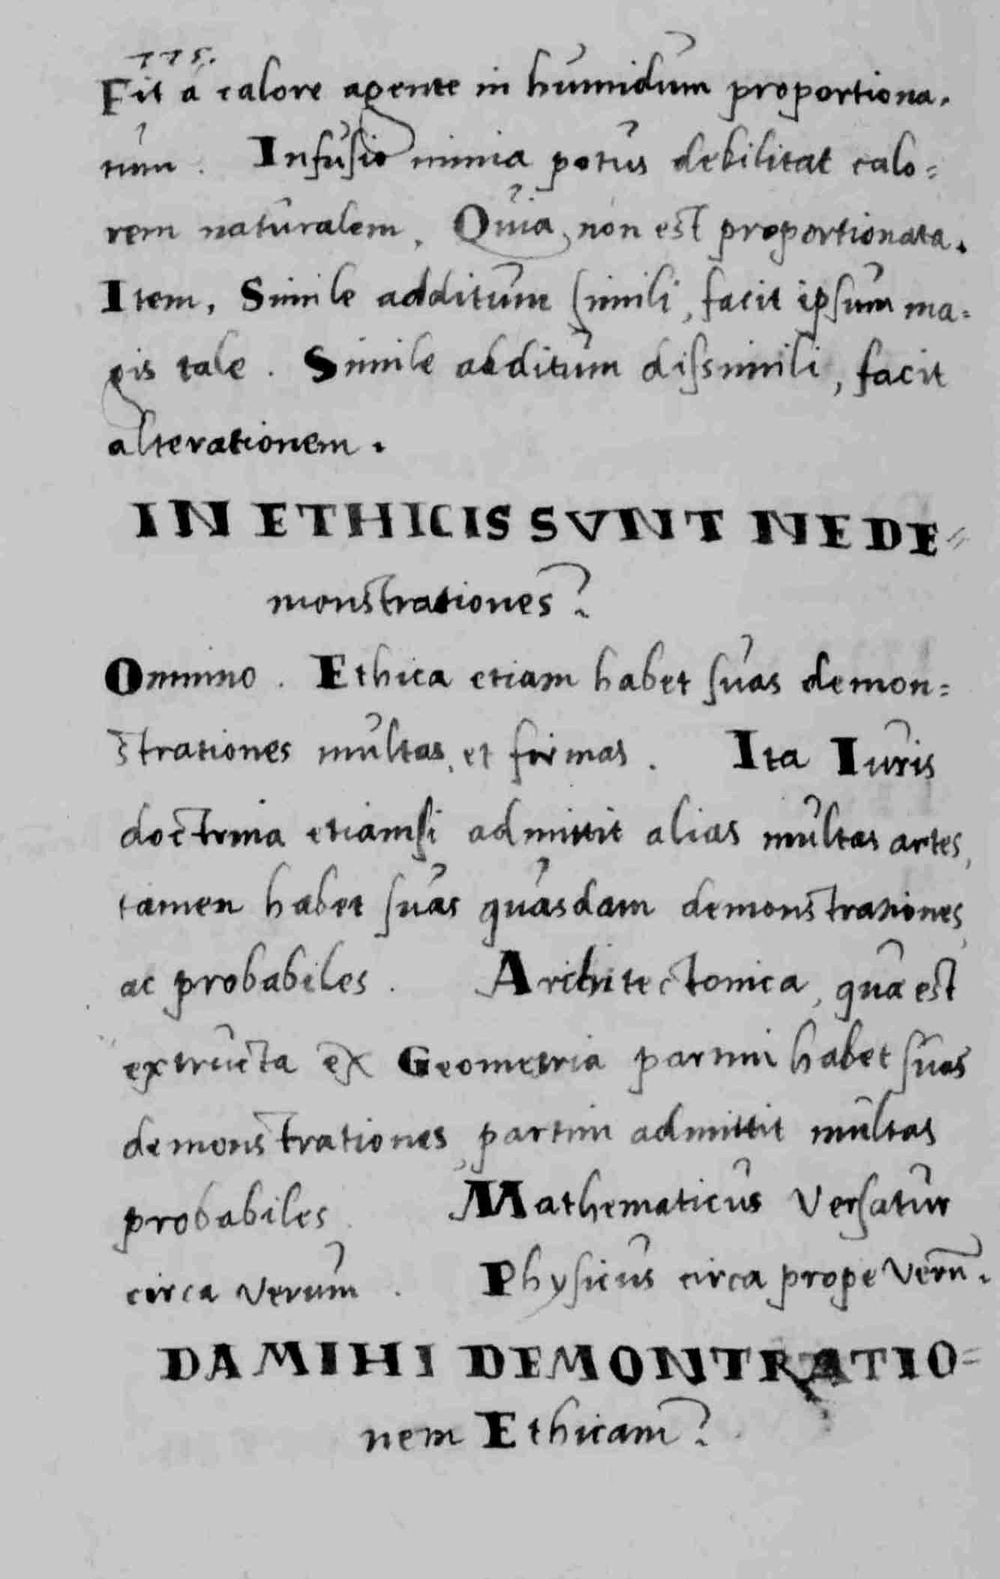 Fit à calore agente in humidum proportiona-
tum. Infusio nimia potus debilitat calo=
rem naturalem. Quia non est proportionata.
Item, Simile additum simili, facit ipsum ma=
gis tale. Simile additum dissimili, facit
alterationem.
IN ETHICIS SVNT NE DE=
monstrationes?
Omnino. Ethica etiam habet suas demon=
strationes multas, et firmas. Ita Iuris
doctrina etiamsi admittit alias multas artes,
tamen habet suas quasdam demonstrationes,
ac probabiles. Architectonica, quæ est
extructa ex Geometria partim habet suas
demonstrationes, partim admittit multas
probabiles. Mathematicus versatur
circa verum. Physicus circa prope verū.
DA MIHI DEMONTRATIO=
nem Ethicam?